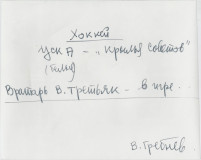 Хоккей
ЦСКА – "Крылья Советов"
Вратарь В. Третьяк - в игре
В. Гребнев